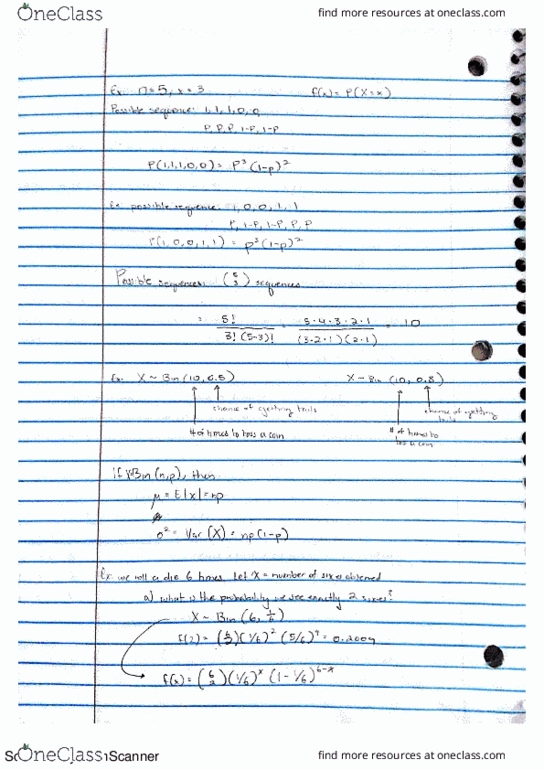 OneClass find more resources at oneclass.com
Ex. n=5, x=3 f(x)=P(X=x)
Possible sequence: 1,1,1,0,0
P,P,P,1-P,1-P
P(1,1,1,0,0) = P³(1-p)²
Ex. possible sequence: 1,0,0,1,1
P,1-P,1-P,P,P
P(1,0,0,1,1) = p³(1-p)²
Possible sequences: (5 3) sequences
= 5! / 3!(5-3)! = 5·4·3·2·1 / (3·2·1)(2·1) = 10
Ex. X ~ Bin(10,0.5) X ~ Bin(10,0.8)
chance of getting tails chance of getting tails
# of times to toss a coin # of times to toss a coin
If X~Bin(n,p), then
μ = E[x] = np
σ² = Var(X) = np(1-p)
Ex. we roll a die 6 times. Let X = number of sixes observed
a) what is the probability we see exactly 2 sixes?
X ~ Bin(6, 1/6)
f(2) = (6 2)(1/6)²(5/6)⁴ = 0.2009
f(x) = (6 2)(1/6)ˣ(1-1/6)⁶⁻ˣ
OneClass Scanner find more resources at oneclass.com